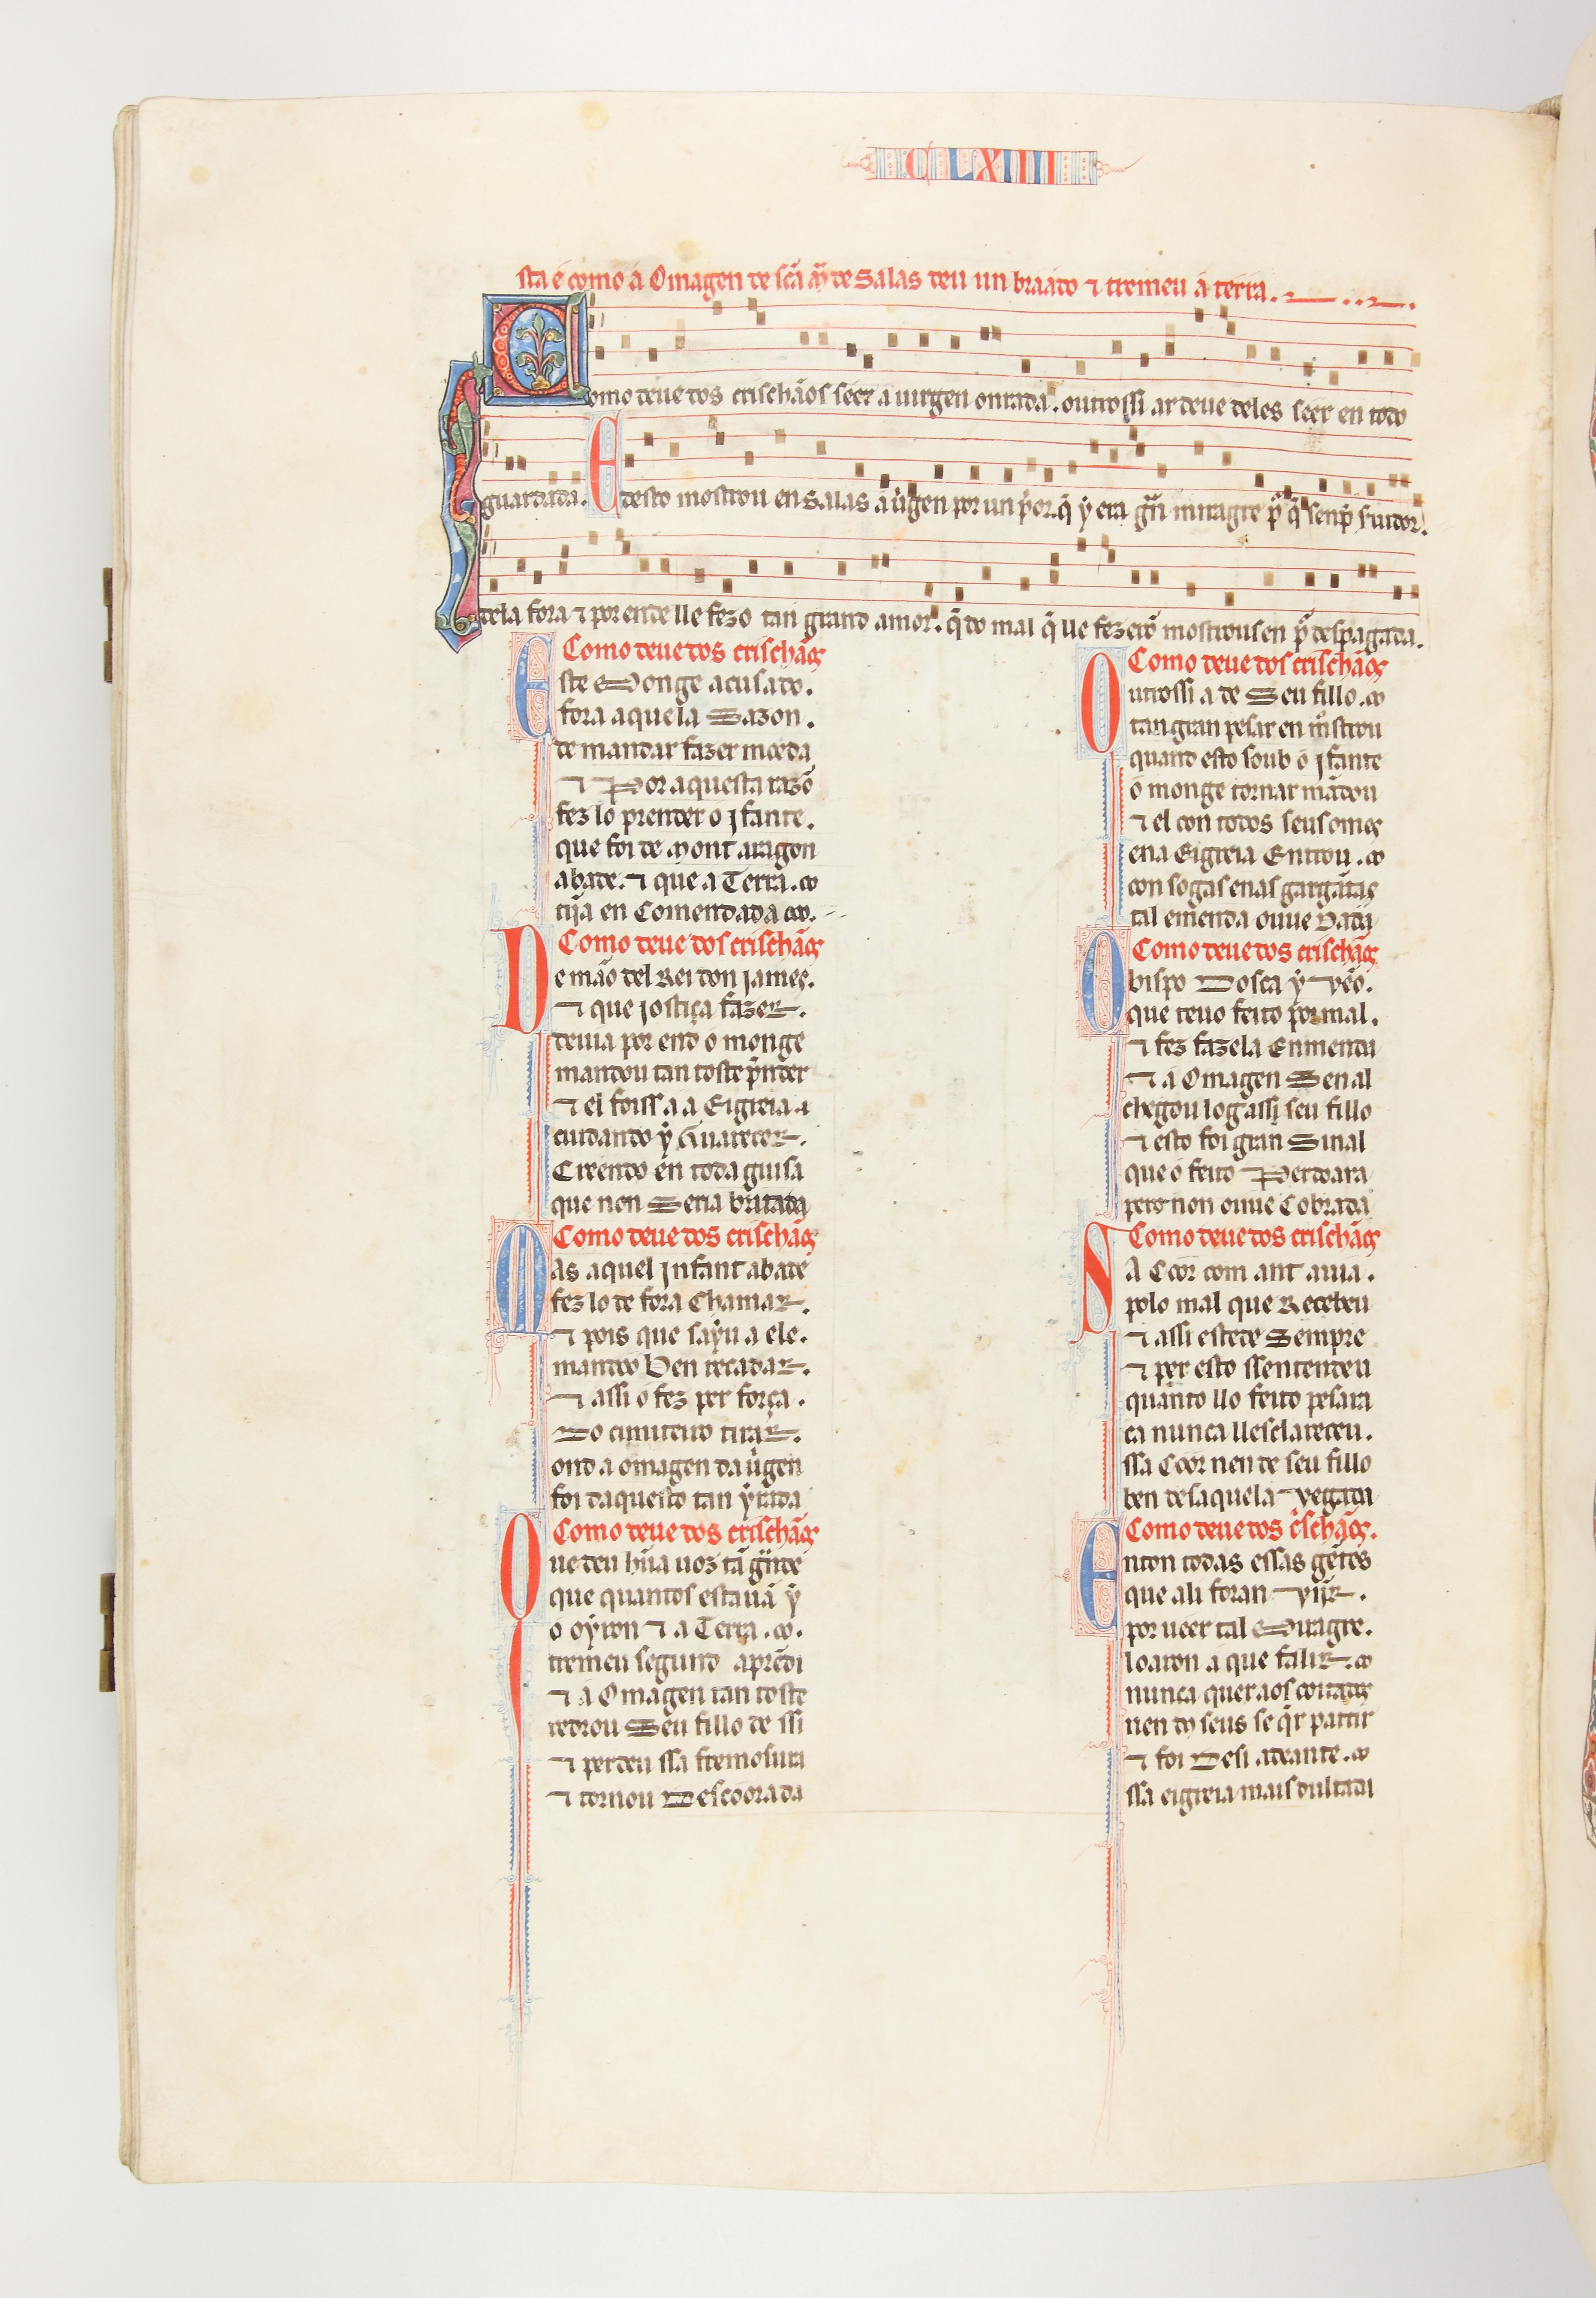 CLXIIII
sta é como a Omagen de scã mª de Salas deu un braado ⁊ tremeu a terra.
Como deue dos crischãos seer a uirgen onrrada. outrossi ar deue deles seer en todo
guardada. E desto mostrou en Salas a uirgen por un prior. q̃ y era grã miragre p̃ q̃ senp̃ seruidor.
dela fora ⁊ por ende lle fezo tan grand amor. q̃ do mal q̃ lle fezerõ mostrousen p̃ despagada.
Como deue dos crischãos
Este Monge acusado.
fora aquela Sazon.
de mandar fazer moeda
⁊ Por aquesta razõ
fez lo prender o jfante.
que foi de Mont aragon
abade. ⁊ que a Terra.
tijña en Comendada
Como deue dos crischãos
De mão del Rei don james.
⁊ que jostiça fazer.
deuia por end o monge
mandou tan toste p̃nder
⁊ el foiss a a Eigreia
cuidando y Guarecer.
Creendo en toda guisa
que non Seria britada
Como deue dos crischãos
Mas aquel jnfant abade
fez lo de fora Chamar.
⁊ pois que sayu a ele.
mandoo Ben recadar.
⁊ assi o fez per força.
Do cimiteiro tirar.
ond a omagen da uirgen
foi daquesto tan yrada
Como deue dos crischãos
Que deu hũa uoz tã grãde
que quantos estauã y
o oyron ⁊ a Terra.
tremeu segund aprẽdi
⁊ a Omagen tan toste
redrou Seu fillo de ssi
⁊ perdeu ssa fremosura
⁊ tornou Descoorada
Como deue dos crischãos
Outrossi a de Seu fillo.
tan gran pesar en mostrou
quand esto soub o jfante
o monge tornar mãdou
⁊ el con todos seus omẽs
ena Eigreia Entrou.
con sogas enas gargãtas
tal emenda ouue Dada
Como deue dos crischãos
Obispo Dosca y vẽo.
que teuo feito por mal.
⁊ fez fazela Enmenda
⁊ a Omagen Senal
chegou log assi seu fillo
⁊ esto foi gran Sinal
que o feito Perdoara
pero non ouue Cobrada
Como deue dos crischãos
SA Coor com ant auia.
polo mal que Recebeu
⁊ assi estede Sempre
⁊ per esto ssentendeu
quanto llo feito pesara
ca nunca llesclareceu.
ssa Coor nen de seu fillo
ben desaquela vegada
Como deue dos crischãos.
Enton todas essas gẽtes
que ali foran viir.
por ueer tal Miragre.
loaron a que falir.
nunca quer aos coitados
nen dos seus se q̃r partir
⁊ foi Desi adeante.
ssa eigreia mais dultada